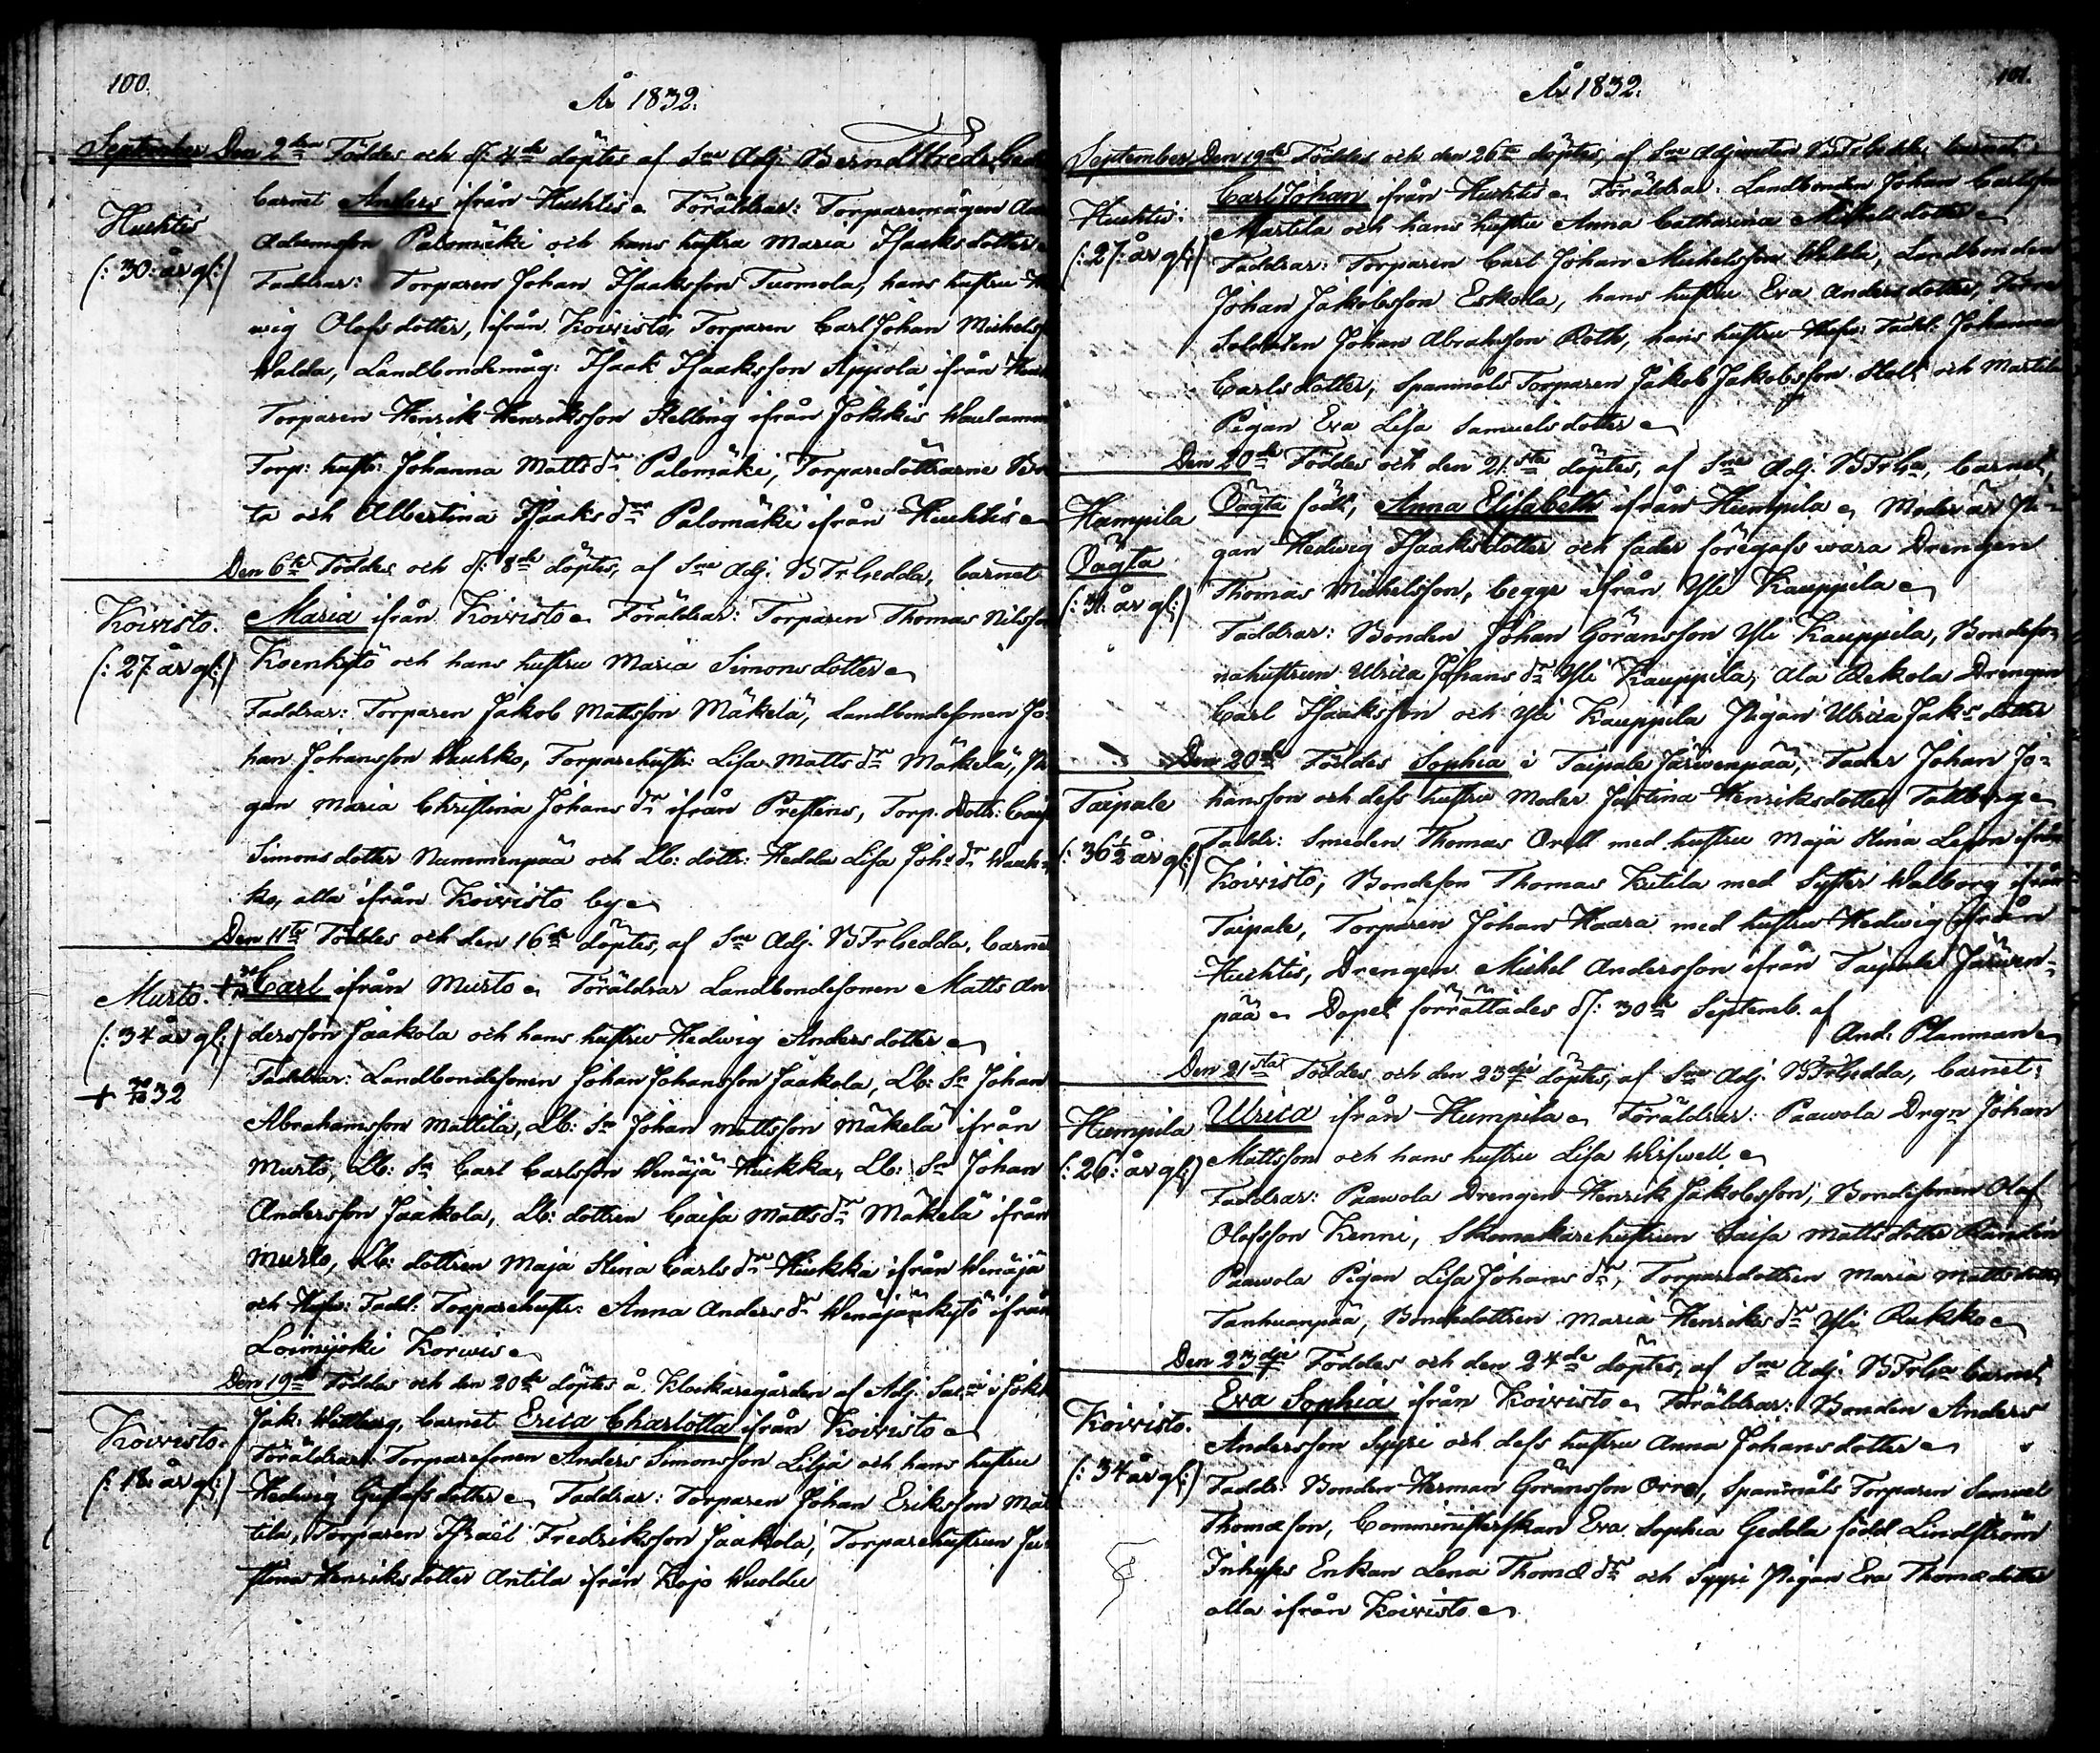 100.
År 1832.
September Den 2dra Föddes och d: 4de döptes af Sne Adj: Berndt Fredr. Ged
barnet Anders ifrån Huhtis. Föräldrar: Torparemågen
Huhtis
Adamsson Palomäki och hans hustru Maria Isaaksdotter
(: 30: år gl:)
Faddrar: Torparen Johan Isaaksson Tuomola, hans hustru
wig Olofsdotter, ifrån Koivisto, Torparen Carl Johan Michels
Walda, Landbondemåg: Isaak Isaaksson Äppola ifrån
Torparen Henrik Henriksson Helling ifrån Jokkis
Torp: hustr: Johanna Matts dr Palomäki, Torparedöttrarne
ta och Albertina Isaaks dr Palomäki ifrån Huhtis
Den 6te Föddes och d: 8de döptes, af Sne Adj. B Fr Gedda, barnet
Koivisto.
Maria ifrån Koivisto. Föräldrar: Torparen Thomas Nilsson
(: 27: år gl:)
Koenkytö och hans hustru Maria Simonsdotter
Faddrar: Torparen Jakob Mattsson Mäkelä, Landbondesonen Jo-
han Johansson Wuohko, Torparehustr: Lisa Matts dr Mäkelä, Pi
gan Maria Christina Johans dr ifrån Prestens, Torp. Dottr:
Simonsdotter Nummenpää och Lb: dottr: Hedda Lisa Johs dr
ko, alla ifrån Koivisto by
Den 11te Föddes och den 16de döptes, af Sne Adj. B Fr Gedda, barnet
Murto.
Carl ifrån Murto. Föräldrar Landbondesonen Matts An
(: 34 år gl:)
dersson Jaakola och hans hustru Hedwig Andersdotter
Faddrar: Landbondesonen Johan Johansson Jaakola, Lb: Sn Johan
+ 30/10 32
Abrahamsson Mattila, Lb: Sn Johan Mattsson Mäkelä ifrån
Murto, Lb: Sn Carl Carlsson Wenäjä Hiukka, Lb: Sn Johan
Andersson Jaakola, Lb: dottren Caisa Matts dr Mäkelä ifrån
Murto, Lb: dottren Maja Stina Carls dr Hiukka ifrån Wenäjä
och Hufv: Fadd: Torparehustr: Anna Anders dr Wenäjänkytö ifrån
Loimijoki Korwis
Den 19de Föddes och den 20de döptes å Klockaregården af Adj: Sacr: i Jokk
Koivisto.
Jak: Wittberg, barnet Erica Charlotta ifrån Koivisto
(: 18: år gl:)
Föräldrar: Torparesonen Anders Simonsson Lilja och hans hustru
Hedwig Gustafsdotter. Faddrar: Torparen Johan Eriksson Mat
tila, Torparen Israël Fredriksson Jaakola, Torparehustrun Ju
stina Henriksdotter Antila ifrån Kojo
101.
År 1832.
September Den 19de Föddes och den 26te döptes, af Sne Adjuncten B Fr Gedda barnet
Huhtis:
Carl Johan ifrån Huhtis. Föräldrar: Landbonden Johan Carlsson
(: 27: år gl:)
Martila och hans hustru Anna Catharina Michelsdotter
Faddrar: Torparen Carl Johan Michelsson Walda, Landbonden
Johan Jakobsson Eskola, hans hustru Eva Andersdotter,
Soldaten Johan Abrahsson Roth, hans hustru Hufv: Fadd: Johanna
Carlsdotter, Spanmåls Torparen Jakob Jakobsson Stolt och Martila
Pigan Eva Lisa Samuelsdotter
Den 20de Föddes och den 21sta döptes, af Sne Adj. B Fr Ga, barnet,
Humpila
Oägta född, Anna Elisabeth ifrån Humpila. Moder är Pi-
Oägta
gan Hedwig Isaaksdotter och fader föregafs wara Drengen
(: 31: år gl:)
Thomas Michelsson, begge ifrån Yli Kauppila
Faddrar: Bonden Johan Göransson Yli Kauppila, Bondeso-
nehustrun Ulrica Johans dr Yli Kauppila, Ala Rekola Drengen
Carl Isaaksson och Yli Kauppila Pigan Ulrica Jaksdotter
Den 20de Föddes Sophia i Taipale Järwenpää, Fader Johan Jo-
Taipale
hansson och dess hustru Moder Justina Henriksdotter Tallberg
(: 36 1/2 år gl:)
Faddr: Smeden Thomas Orell med hustru Maja Stina ifrån
Koivisto, Bondeson Thomas Kitila med Syster Walborg ifrån
Taipale, Torparen Johan Haara med hustru Hedwig ifrån
Huhtis, Drengen Michel Andersson ifrån Taipale Järwen-
pää. Dopet förrättades d: 30de Septemb. af
And. Planman
Den 21sta Föddes och den 23dje döptes, af Sne Adj. B Fr Gedda, barnet:
Humpila
Ulrica ifrån Humpila. Föräldrar: Paawola Drgn Johan
(: 26: år gl:)
Mattsson och hans hustru Lisa Wirswell
Faddrar: Paawola Drengen Henrik Jakobsson, Bondesonen Olof
Olofsson Kenni, Skomakarehustrun Caisa Mattsdotter Randen
Paawola Pigan Lisa Johans dr, Torparedottren Maria Mattsdotter
Tanhuanpää, Bondedottren Maria Henriks dr Yli Rukko
Den 23dje Föddes och den 24de döptes, af Sne Adj. B Fr Ga barnet
Koivisto.
Eva Sophia ifrån Koivisto. Föräldrar: Bonden Anders
(: 34 år gl:)
Andersson Syyri och dess hustru Anna Johansdotter
Faddr: Bonden Herman Göransson Orre, Spanmåls Torparen Samuel
Thomæson, Comministerskan Eva Sophia Gedda född Lindström
Inhyses Enkan Lena Thomæ dr och Syyri Pigan Eva Thomædotter
alla ifrån Koivisto